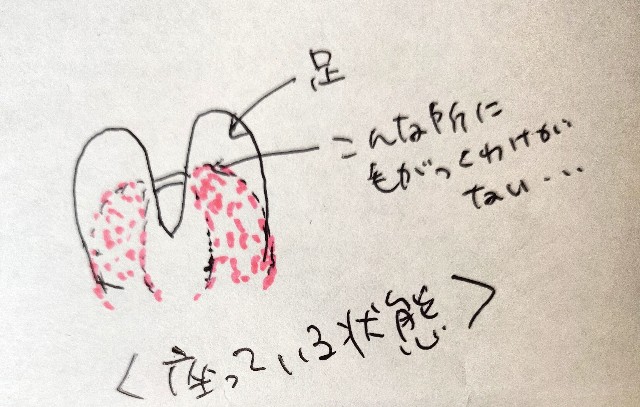 足
こんな所に
毛がつくわけが
ない…
<座っている状態>